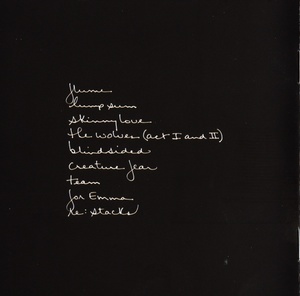 flume
lump sum
skinny love
the wolves (act I and II)
blindsided
creature fear
team
for Emma
Re: stacks